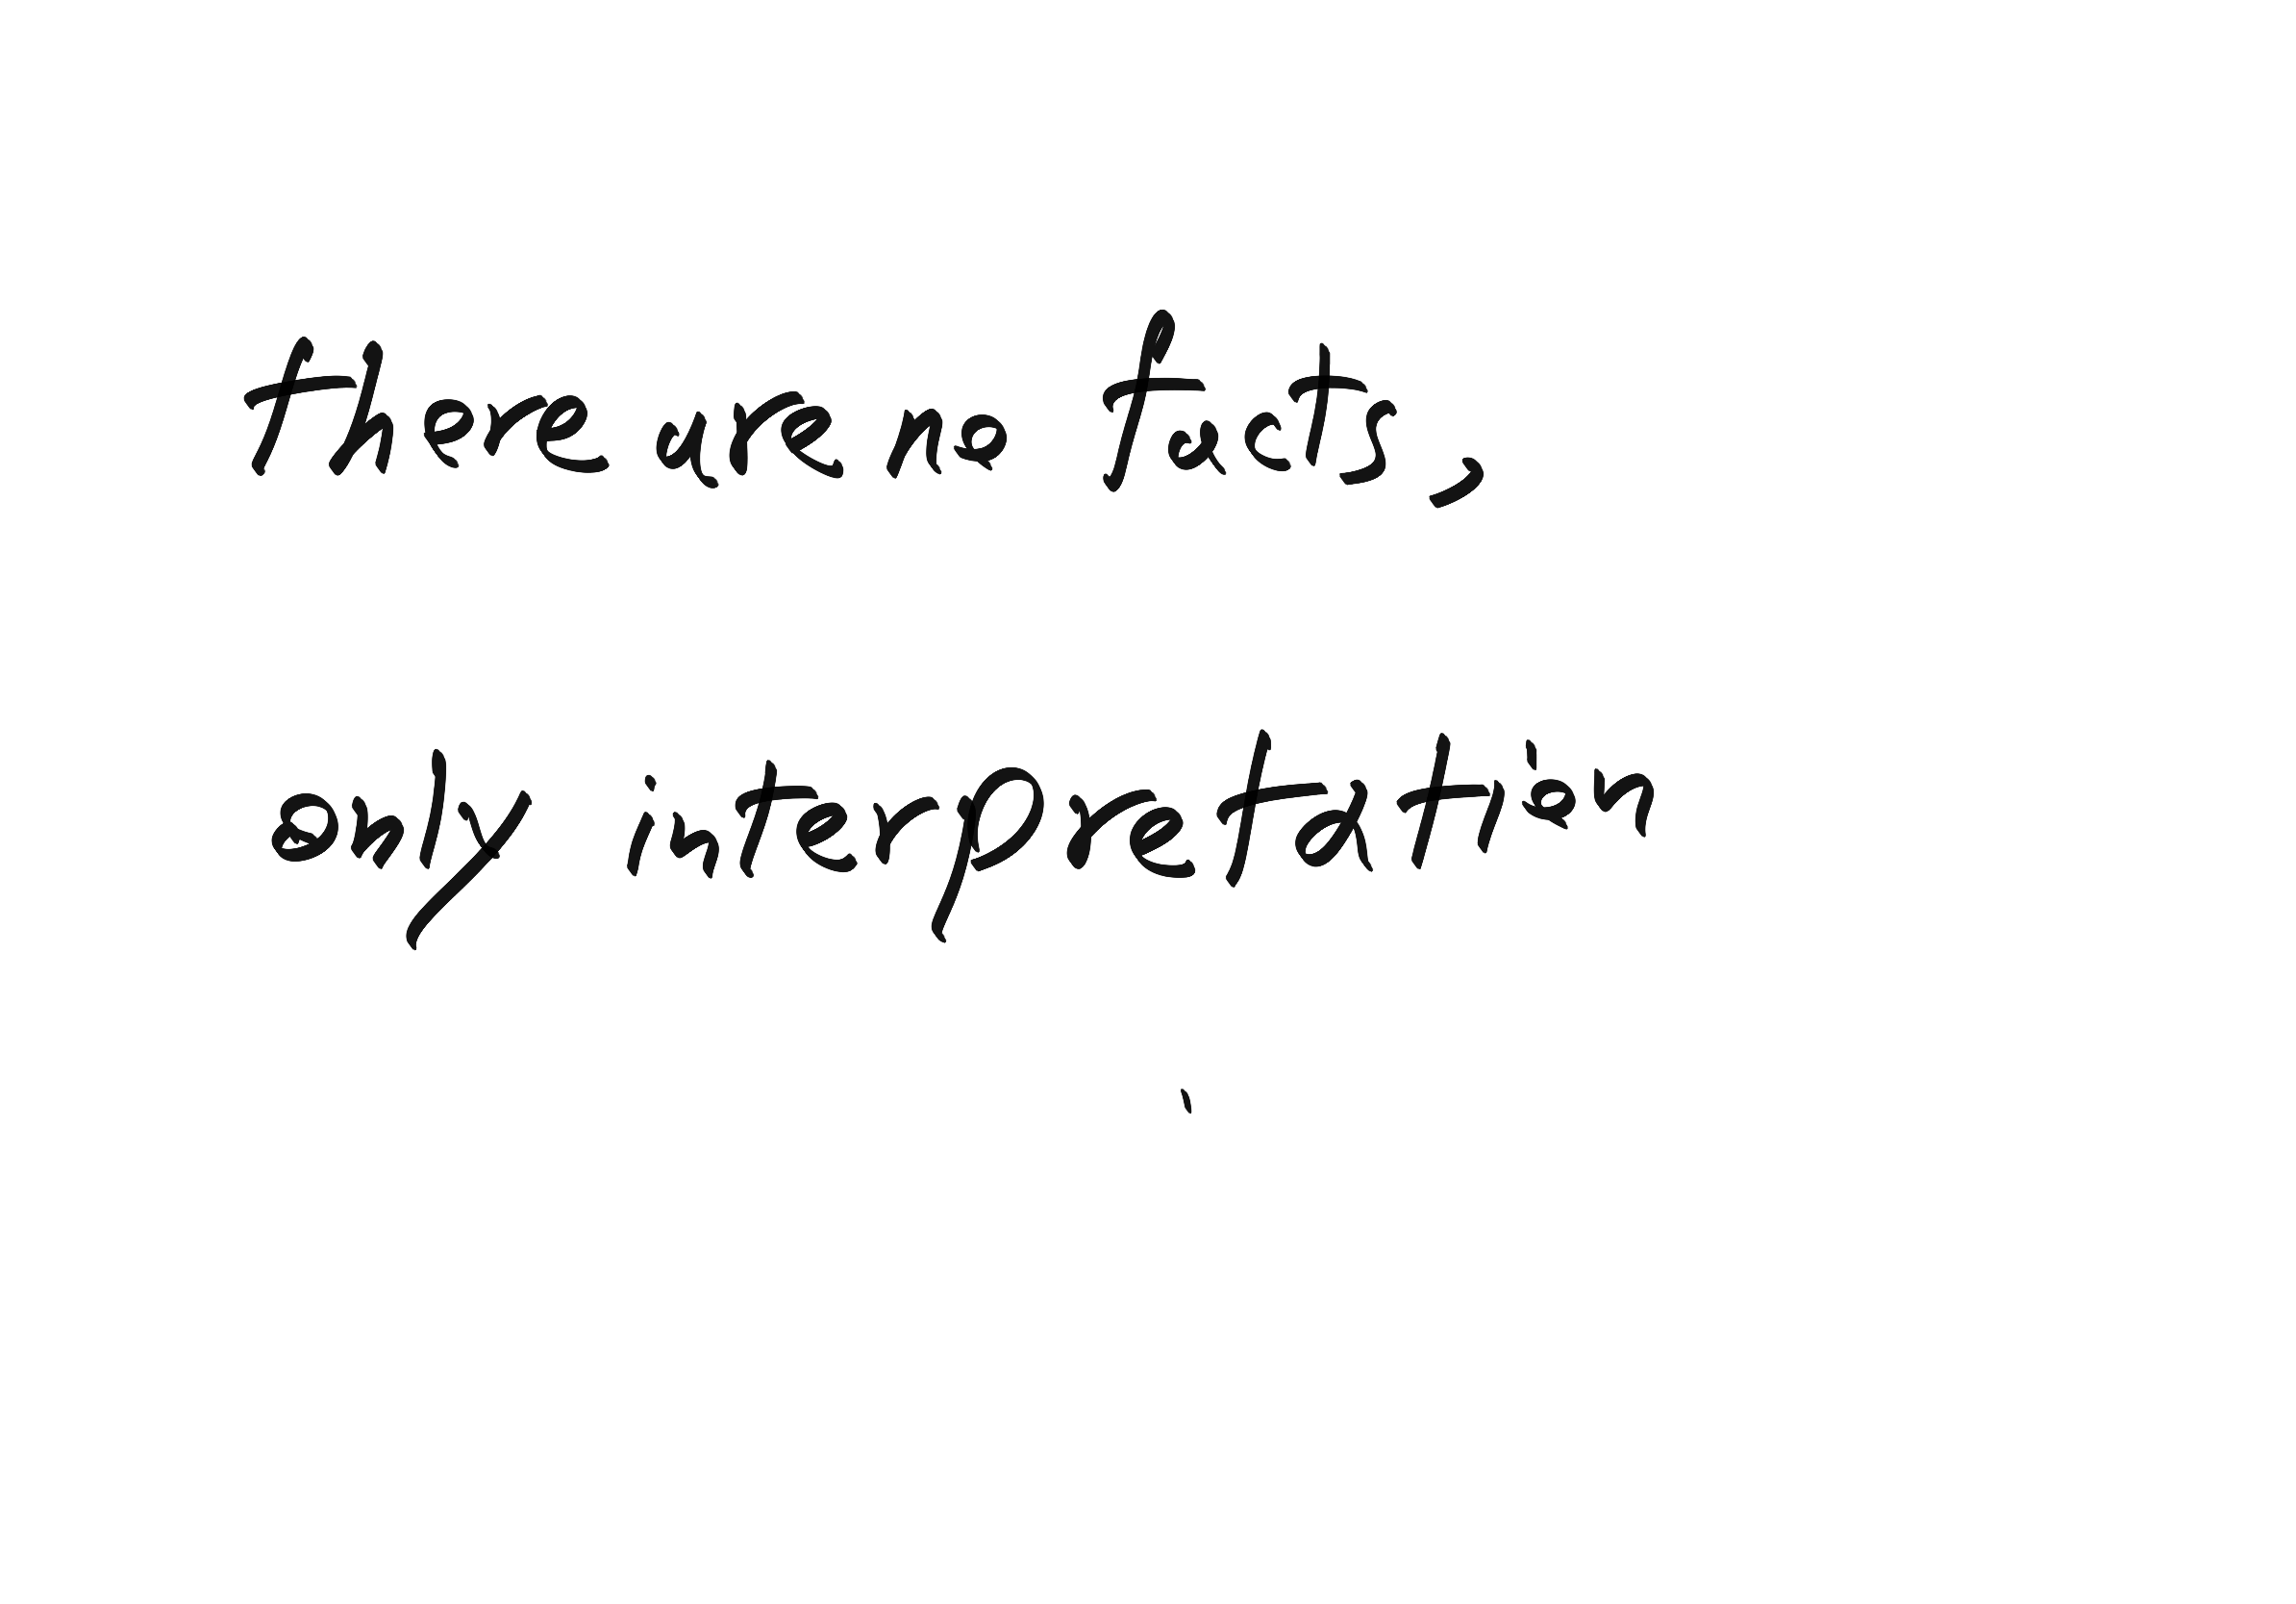 there are no facts,
only interpretation